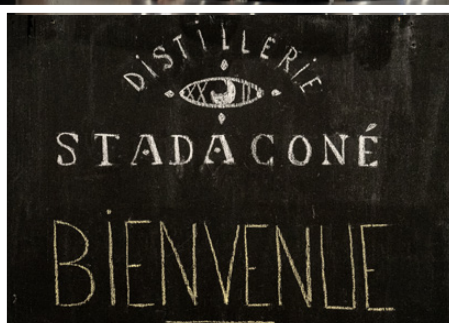 DiSTiLLERiE
STADACONÉ
BiENVENUE